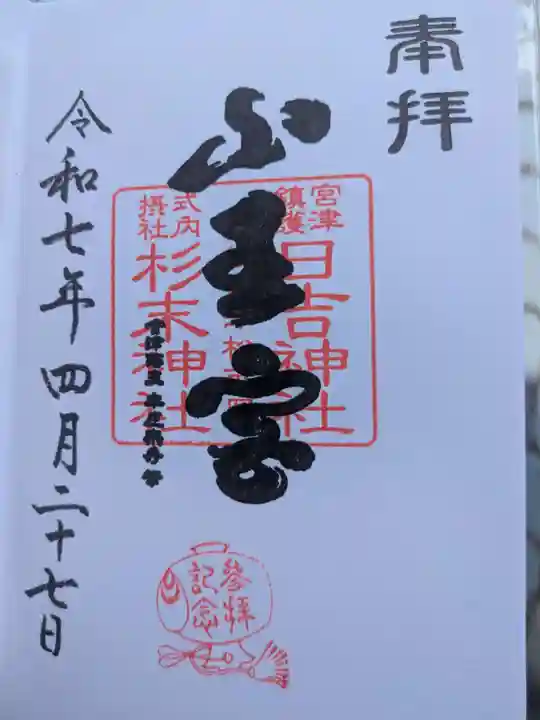 奉拝
山王宮
宮津
鎮護
日吉神社
式内
摂社
杉末神社
参拝
記念
令和七年四月二十七日